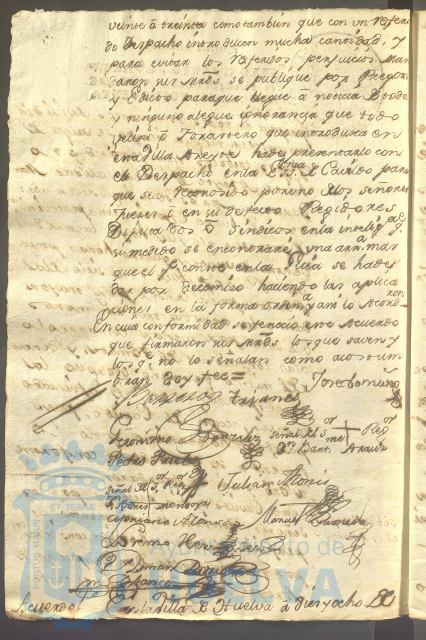 veinte ô treinta como tambien que con un refexi
do Despacho introducen mucha cantidad, y
para evitar los referidos perjuicios man
daron sus mrds se publique por Pregon
y Edicto para que llegue â noticia de todos
y ninguno alegue ignorancia que todo
Vecino ô Forastero que introduzca en
esta Villa Azeyte ha de presentarlo con
el Despacho en la Essna de Cavildo para
que sea Reconocido por uno de los Señores
Juezes ô en su defecto Regidores
Diputados ô Sindicos en la intelig.a q.e
si medido se encontrare una arra mas
que el q.e corre en la Plaza se ha de
dar por decomiso haciendo las aplica
ciones en la forma ordin.a y asi lo Acordaron
En cuia conformidad se fenecio este Acuerdo
que firmaron sus mrds los que saven y
los q.e no lo señalan como acostum
bran doy fee =
Geronimo Gonzalez señal del s.or Reg.or
Pedro
señal del s.or Reg.or Julian
Cipriano Alonso Manuel
Acuerdo En la Villa de Huelva â diez y ocho de
Ayuntamiento de
HUELVA